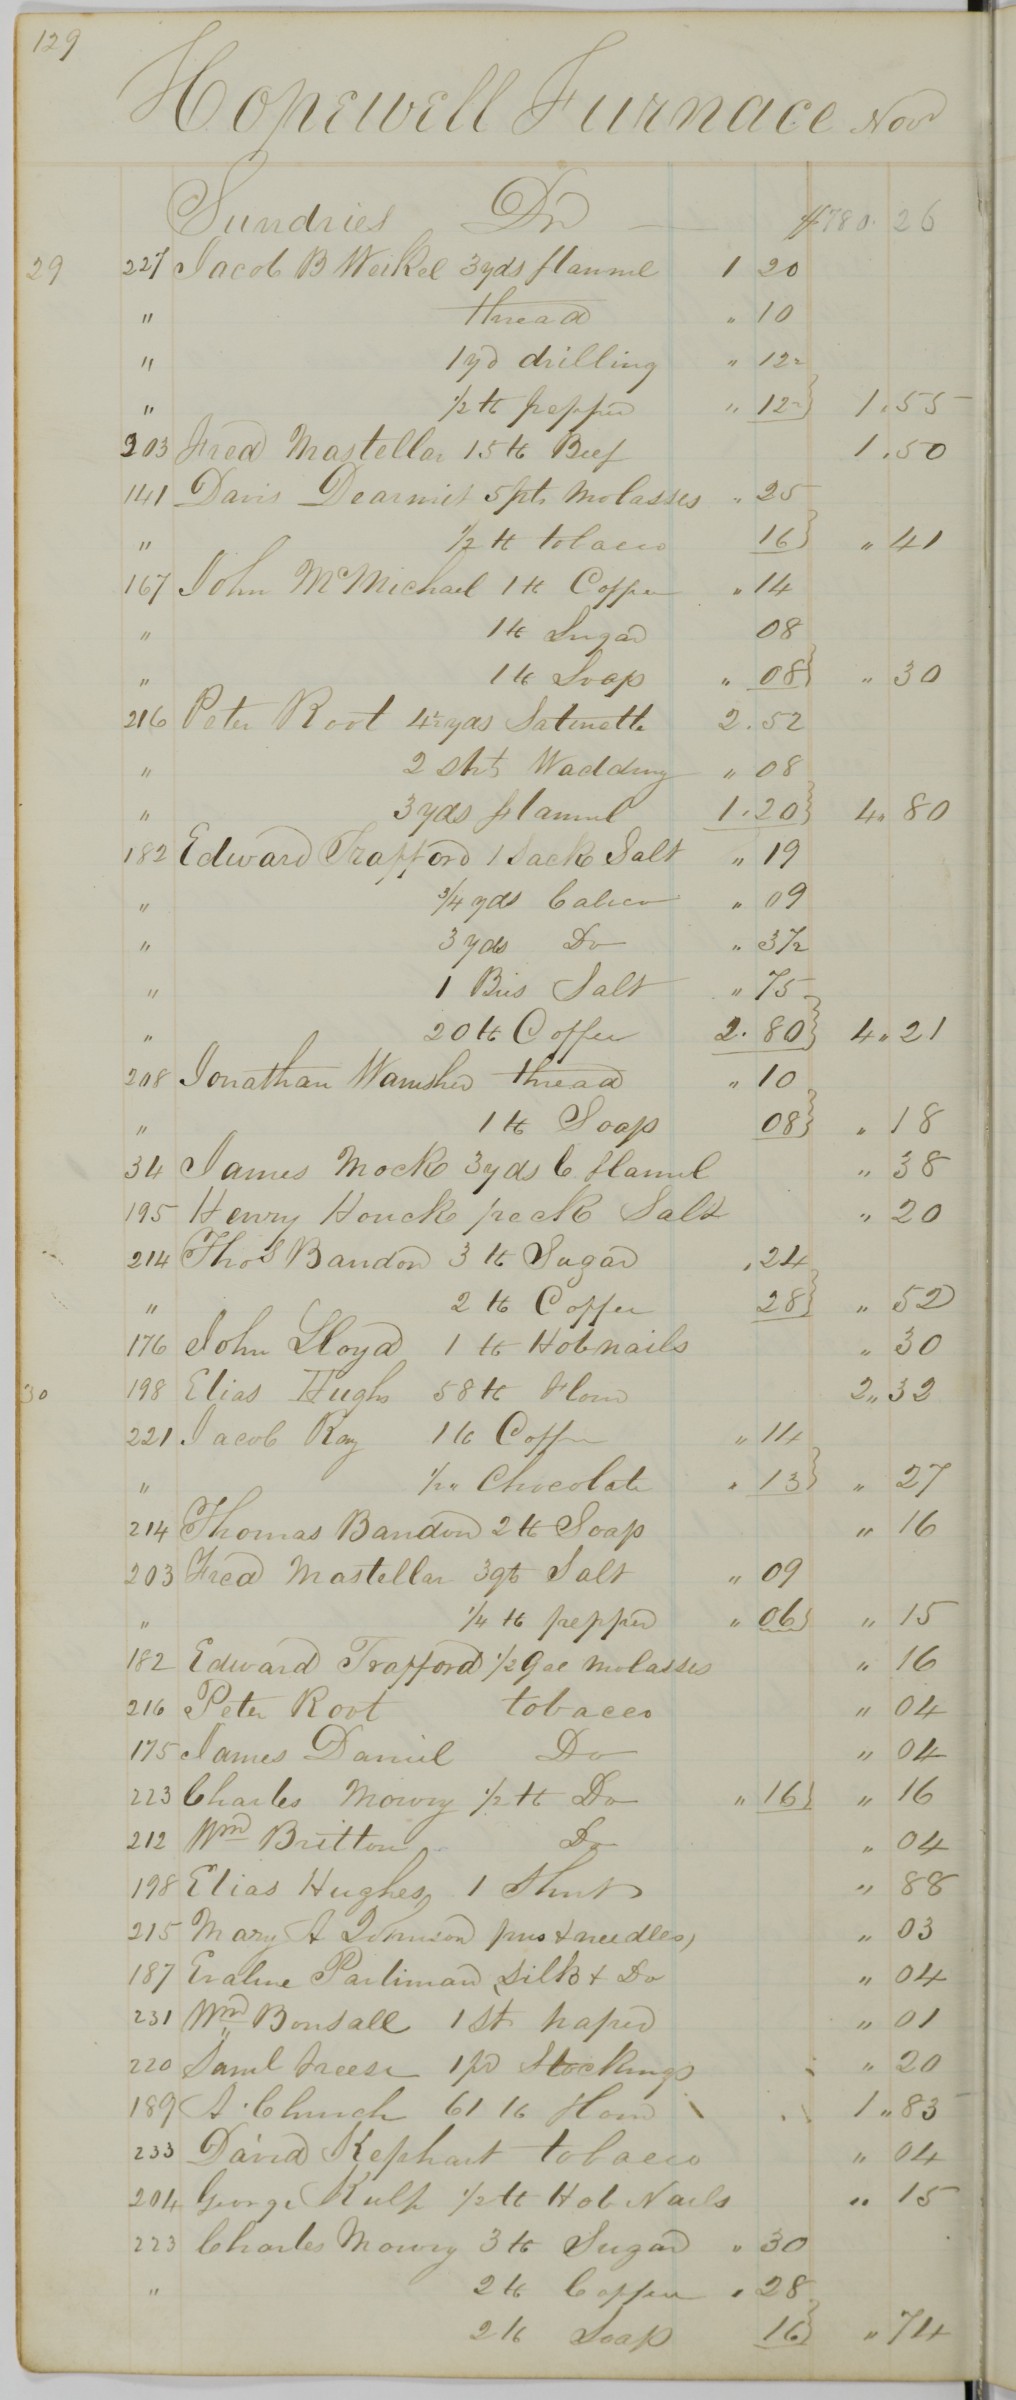 129
Hopewell Furnace Nov
Sundries Dr $780. 26
29 227 Jacob B Weikel 3yds flannel 1 20
" thread " 10
" 1yd drilling " 12½
" ½ ℔ pepper " 12½} 1.55
203 Fred Mastellar 15 ℔ Beef 1.50
141 Davis Dearmit 5pts Molasses " 25
" ½ ℔ tobacco 16} " 41
167 John McMichael 1 ℔ Coffee " 14
" 1 ℔ Sugar 08
" 1 ℔ Soap " 08} " 30
216 Peter Root 4½yds Satinette 2.52
" 2 shts Wadding " 08
" 3yds flannel 1.20} 4" 80
182 Edward Trafford 1 Sack Salt " 19
" ¾ yds Calico " 09
" 3 yds Do " 37½
" 1 Bus Salt " 75
" 20 ℔ Coffee 2. 80} 4" 21
208 Jonathan Wamsher thread " 10
" 1 ℔ Soap 08} " 18
34 James Mock 3yds C. flannel " 38
195 Henry Houck peck Salt " 20
214 Thos Bandon 3 ℔ Sugar .24
" 2 ℔ Coffee 28} " 52
176 John Lloyd 1 ℔ Hobnails " 30
30 198 Elias Hughs 58 ℔ Flour 2" 32
221 Jacob Kay 1 ℔ Coffee " 14
" ½ " Chocolate " 13} " 27
214 Thomas Bandon 2 ℔ Soap " 16
203 Fred Mastellar 3qts Salt " 09
" ¼ ℔ pepper " 06} " 15
182 Edward Trafford ½ Gal Molasses " 16
216 Peter Root tobacco " 04
175 James Daniel Do " 04
223 Charles Mowry ½ ℔ Do " 16} " 16
212 Wm Britton Do " 04
198 Elias Hughes 1 Shirt " 88
215 Mary A Johnson pins & needles " 03
187 Eveline Partiman Silk & Do " 04
231 Wm Bonsall 1 St paper " 01
220 Saml Freese 1pr Stockings " 20
189 A. Church 61 ℔ flour 1" 83
233 David Kephart tobacco " 04
204 George Kulp ½ ℔ Hob Nails " 15
223 Charles Mowry 3 ℔ Sugar " 30
" 2 ℔ Coffee " 28
2 ℔ Soap 16} " 74